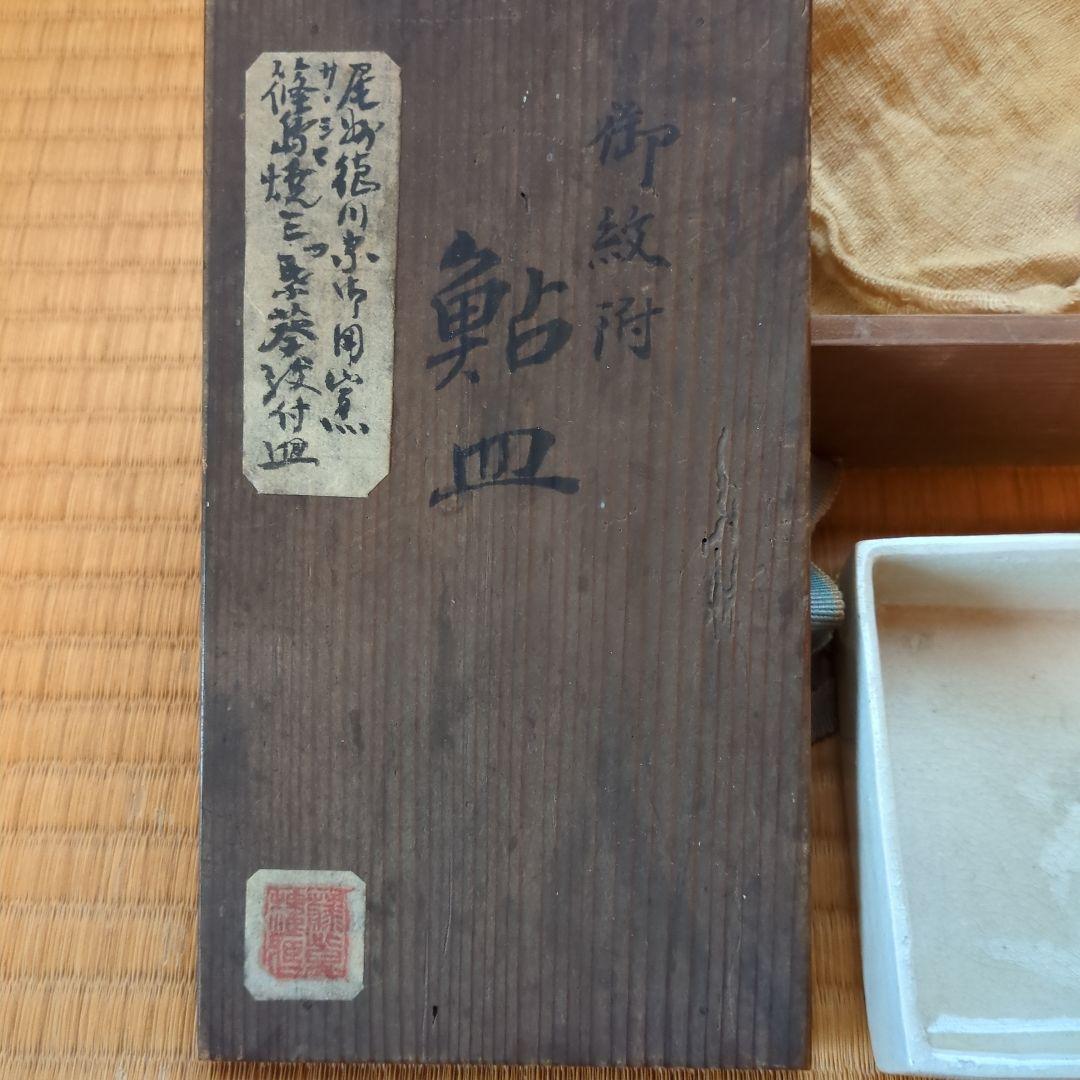 御紋附
鮎皿
尾州徳川家御用窯
篠島焼三つ葉葵紋付皿